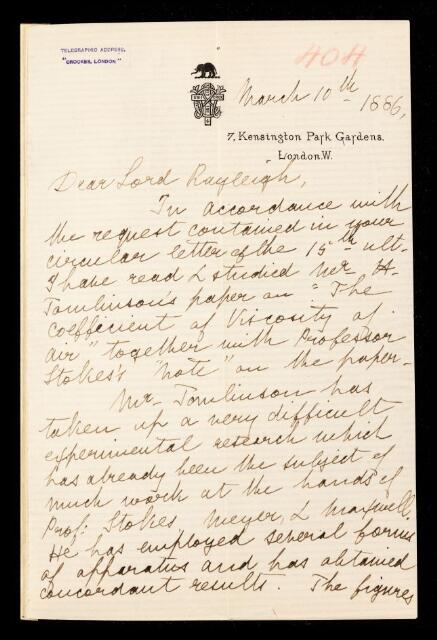 TELEGRAPHIC ADDRESS,
"CROOKES, LONDON"
404
March 10th 1886,
7, Kensington Park Gardens.
London.W.
Dear Lord Rayleigh,
In accordance with
the request contained in your
circular letter of the 15th ult.
I have read & studied Mr H.
Tomlinson's paper on "The
coefficient of Viscosity of
air" together with Professor
Stokes's "note" on the paper.
Mr. Tomlinson has
taken up a very difficult
experimental research which
has already been the subject of
much work at the hands of
Prof. Stokes, Meyer, & Maxwell.
He has employed several forms
of apparatus and has obtained
concordant results. The figures